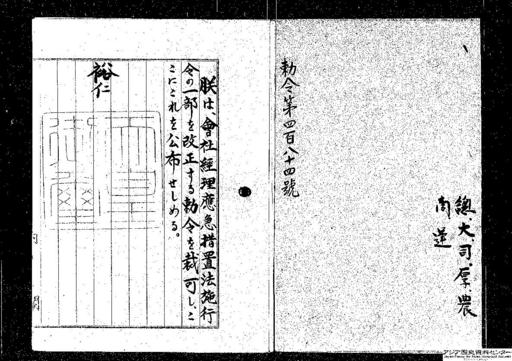 勅令第四百八十四號
總、大、司、厚、農
商、運
朕は、會社經理應急措置法施行
令の一部を改正する勅令を裁可し、こ
こにこれを公布せしめる。
裕仁
天皇
御璽
アジア歴史資料センター